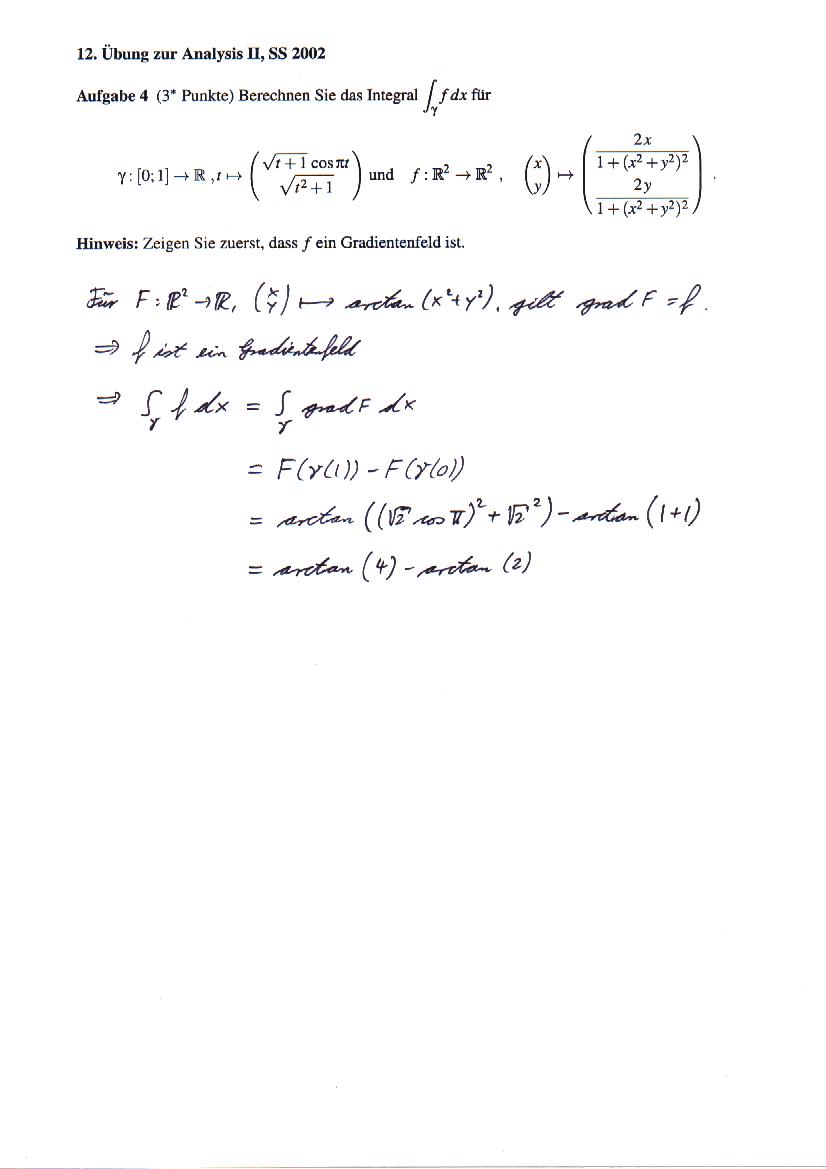 12. Übung zur Analysis II, SS 2002
Aufgabe 4 (3* Punkte) Berechnen Sie das Integral ∫_γ f dx für
γ : [0; 1] → ℝ , t ↦ (√(t+1) cos πt / √(t²+1)) und f : ℝ² → ℝ² , (x / y) ↦ (2x/(1+(x²+y²)²) / 2y/(1+(x²+y²)²)) .
Hinweis: Zeigen Sie zuerst, dass f ein Gradientenfeld ist.
Für F : ℝ² → ℝ, (x / y) ↦ arctan (x²+y²), gilt grad F = f.
⇒ f ist ein Gradientenfeld
⇒ ∫_γ f dx = ∫_γ grad F dx
= F(γ(1)) - F(γ(0))
= arctan ((√2 cos π)² + √2²) - arctan (1+1)
= arctan (4) - arctan (2)